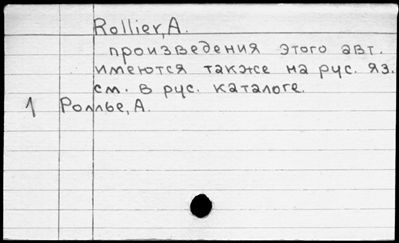 Rollier, A.
произведения этого авт.
имеются также на рус. яз.
см. в рус. каталоге.
1 Роллье, А.